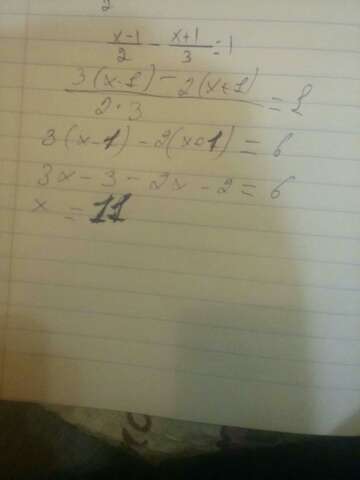 2
(x-1)/2 - (x+1)/3 = 1
(3(x-1) - 2(x+1))/(2·3) = 1
3(x-1) - 2(x+1) = 6
3x - 3 - 2x - 2 = 6
x = 11